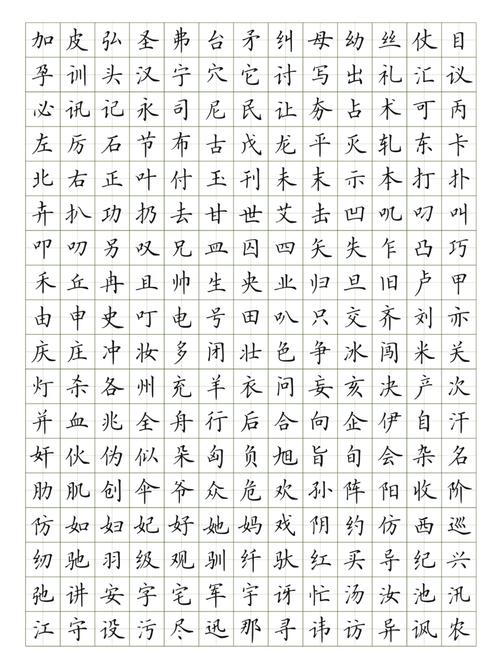 加皮弘圣弗台矛纠母幼丝仗目
孕训头汉宁穴它讨写出礼汇议
必讯记永司尼民让夯占术可丙
左厉石节布古戊龙平灭轧东卡
北右正叶付玉刊未末示本打扑
卉扒功扔去甘世艾击凹叽叼叫
叩叨另叹兄皿囚四矢失乍凸巧
禾丘冉且帅生央业归旦旧卢甲
由申史叮电号田叭只交齐刘亦
庆庄冲妆多闭壮色争冰闯米关
灯杀各州充羊衣问妄亥决产次
并血兆全舟行后合向企伊自汗
奸伙伪似朵匈负旭旨旬会杂名
肋肌创伞爷众危欢孙阵阳收阶
防如妇妃好她妈戏阴约仿西巡
纫驰羽级观驯纤驮红买导纪兴
弛讲安字宅军宇讶忙汤汝池汛
江守设污尽迅那寻讳访异讽农